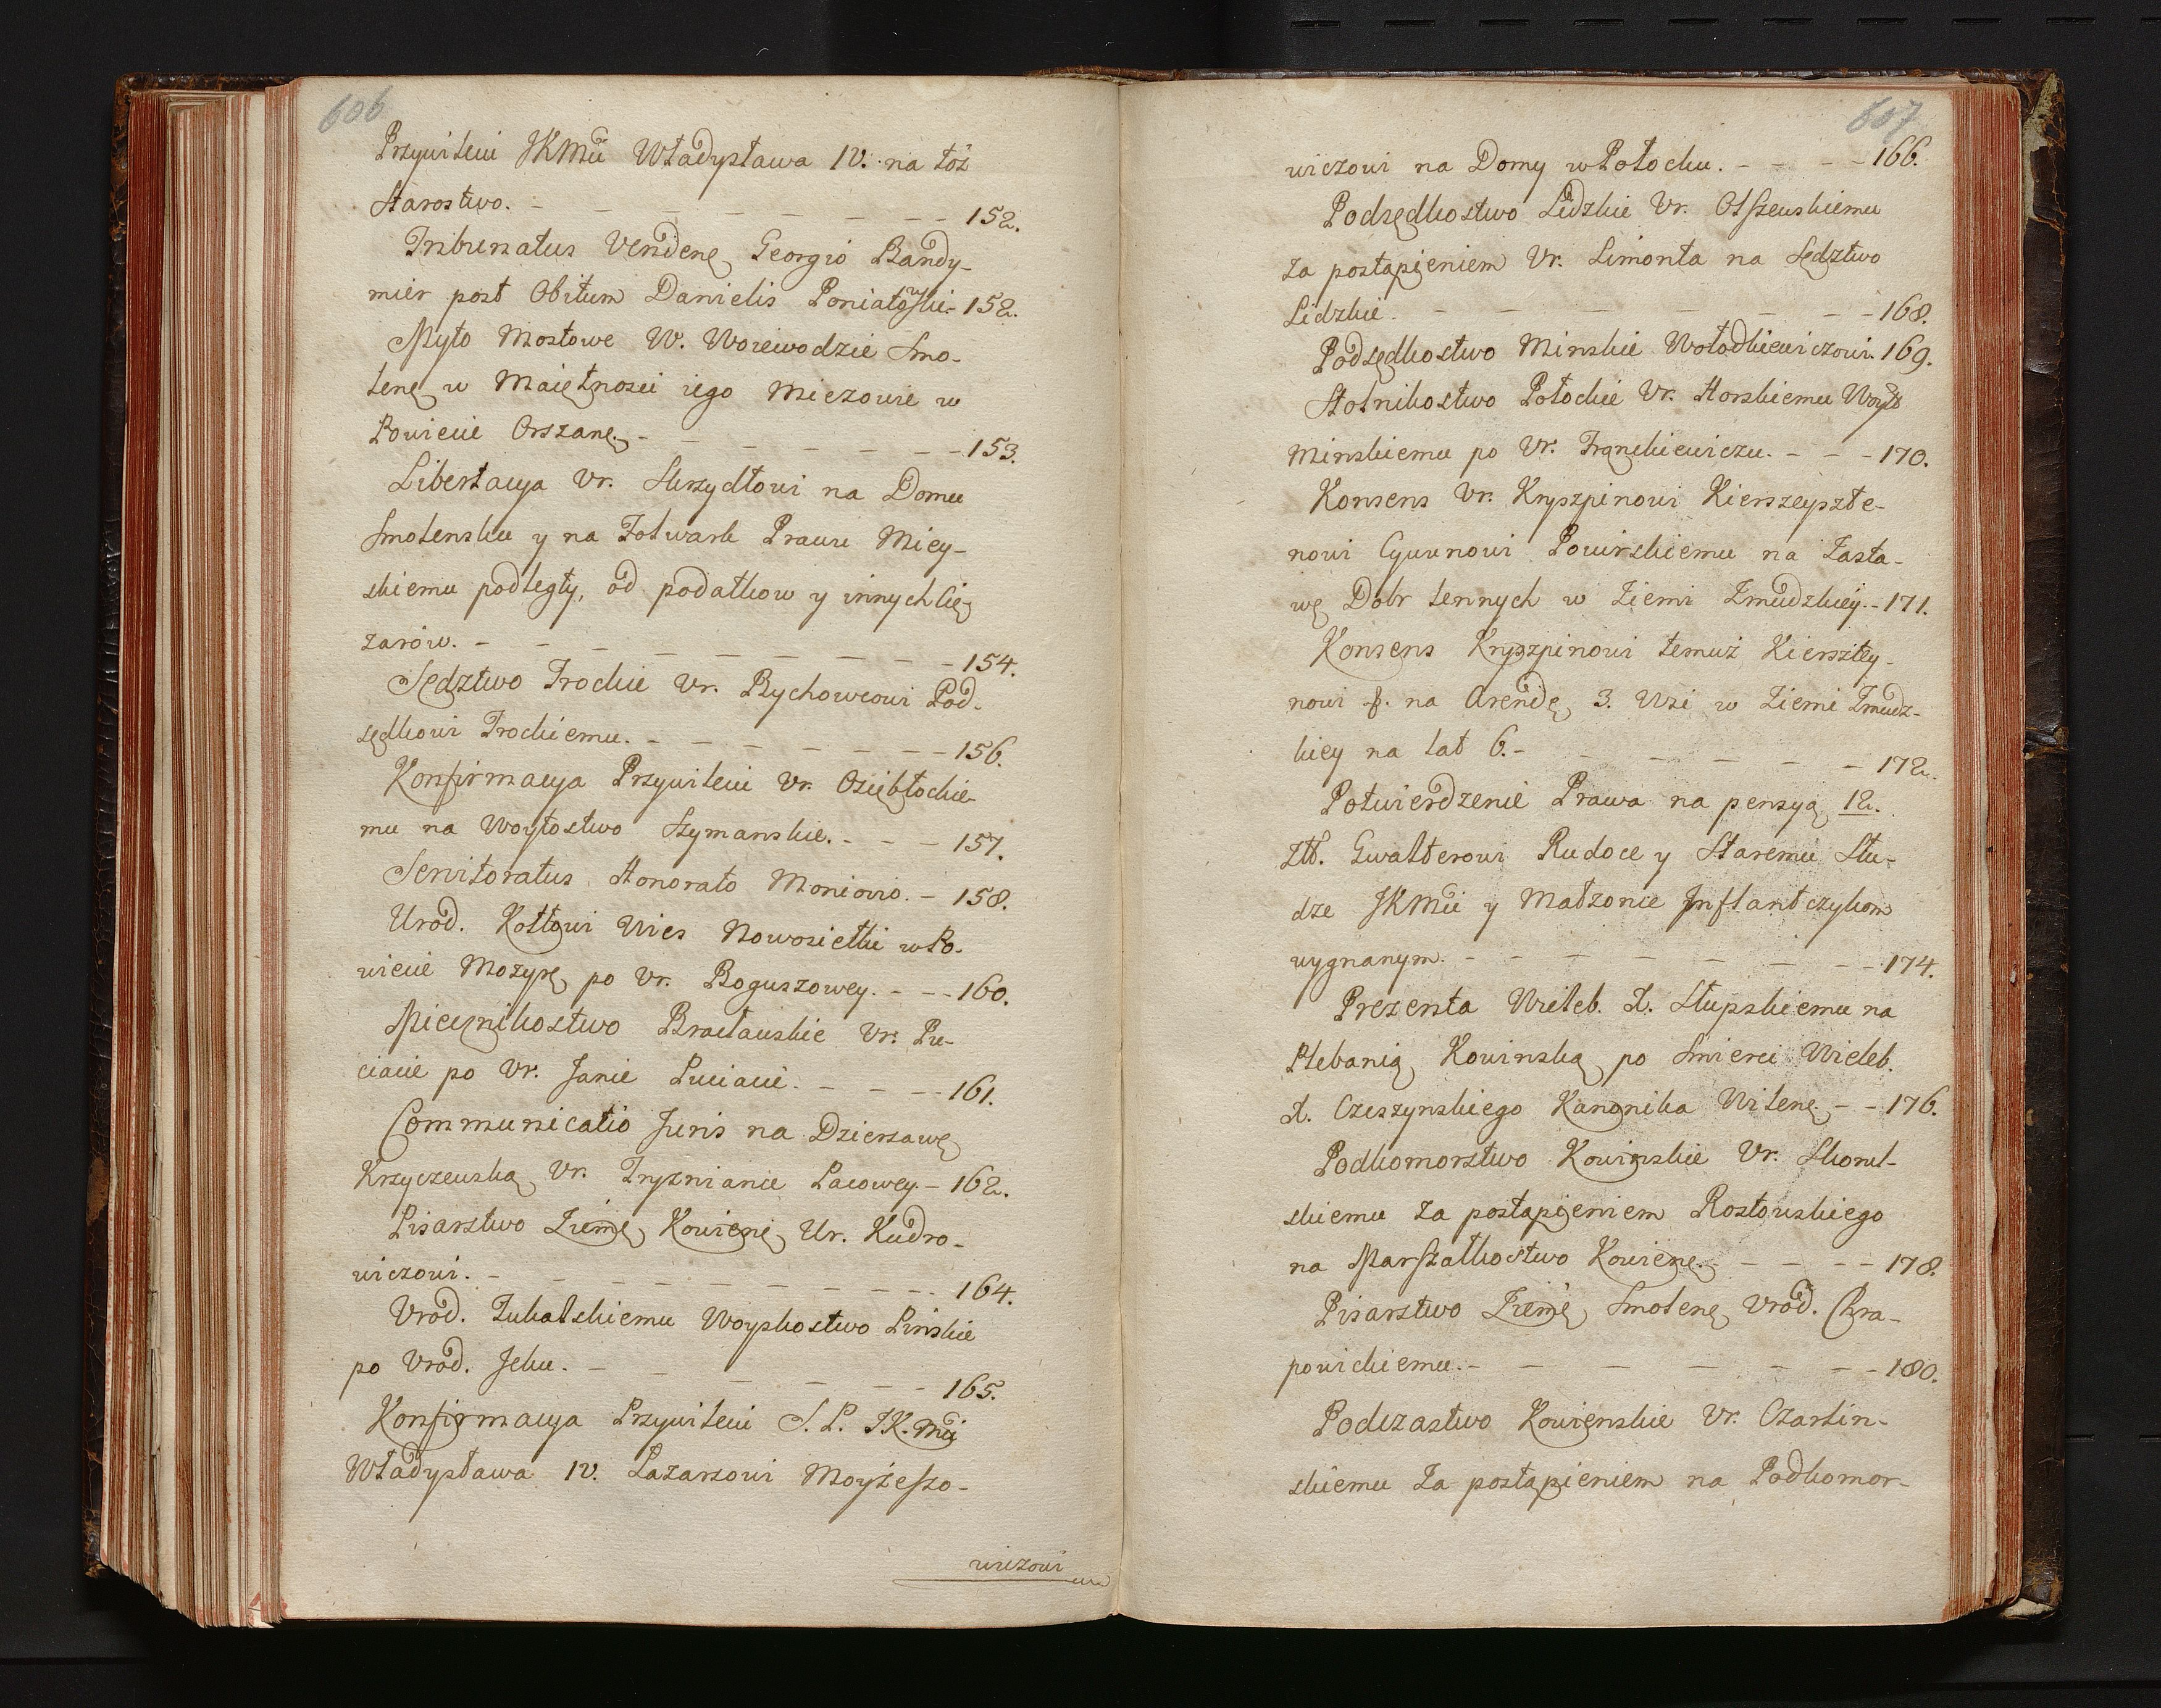 606
Przywileiu JKMci Władysława IV. na tóż
Starostwo. - - - - - - - - 152.
Tribunatus Vendenę Georgio Bandy-
mier post Obitum Danielis Poniatowski - 152.
Myto Mostowe W. Woiewodzie Smo-
lenę w Maiętnosci iego Miczowie w
Powiecie Orszanę. - - - - - - - 153.
Libertacya Vr. Skrzydłowi na Domu
Smolensku y na Folwark Prawu Miey-
skiemu podległy, od podatkow y innych cię
zarów. - - - - - - - - - 154.
Sędztwo Trockie Vr. Bychowcowi Pod-
sędkowi Trockiemu. - - - - - - - 156.
Konfirmacya Przywileiu Vr. Osiębłockie-
mu na Woytostwo Szymanskie. - - - 157.
Servitoratus Honorato Moniowo. - 158.
Urod. Kottowi Wies Nowosiełki w Po-
wiecie Mozyrę po Vr. Boguszowey. - - - 160.
Miecznikostwo Bracławskie Vr. Pu-
ciacie po Vr. Janie Puciacie. - - - - 161.
Communicatio Juris na Dzierzawę
Krzyczewską Vr. Tryznianie Pacowey - 162.
Pisarstwo Ziemę Kowienę Ur. Kudro-
wiczowi. - - - - - - - - - 164.
Vrod. Zukalskiemu Woyskostwo Pinskie
po Vrod. Jelcu. - - - - - - 165.
Konfirmacya Przywileiu S. P. J K. Mci
Władysława IV. Łazarzowi Moyżeszo-
wiczowi
607
wiczowi na Domy w Połocku. - - - - 166.
Podsędkostwo Lidzkie Vr. Olszewskiemu
Za postąpieniem Vr. Limonta na Sędztwo
Lidzkie. - - - - - - - - 168.
Podsędkostwo Minskie Wołodkiewiczowi. 169.
Stolnikostwo Połockie Vr. Horskiemu Woys
Minskiemu po Vr. Frąnckiewiczu. - - - 170.
Konsens Vr. Kryszpinowi Kierszeyszte-
nowi Cywunowi Powirskiemu na Zasta-
wę Dobr lennych w Ziemi Zmudzkiey. - 171.
Konsens Kryszpinowi temuż Kiersztey-
nowi &. na Arendę 3. Wsi w Ziemi Zmudz-
kiey na lat 6. - - - - - - 172.
Potwierdzenie Prawa na pensyą 12.
Złł. Gwalterowi Rudoce y Staremu Słu-
dze JKMci y Małzonce Inflantczykom
wygnanym. - - - - - - - - 174.
Prezenta Wieleb. X. Słupskiemu na
Plebanią Kowinską po Smierci Wieleb.
X. Czeszynskiego Kanonika Wilenę. - - 176.
Podkomorstwo Kowinskie Vr. Skorul-
skiemu Za postąpieniem Rostowskiego
na Marszałkostwo Kowienę. - - - - 178.
Pisarstwo Ziemę Smolenę Vrod. Chra-
powickiemu. - - - - - - - 180.
Podczastwo Kowienskie Vr. Czartin-
skiemu Za postąpieniem na Podkomor-